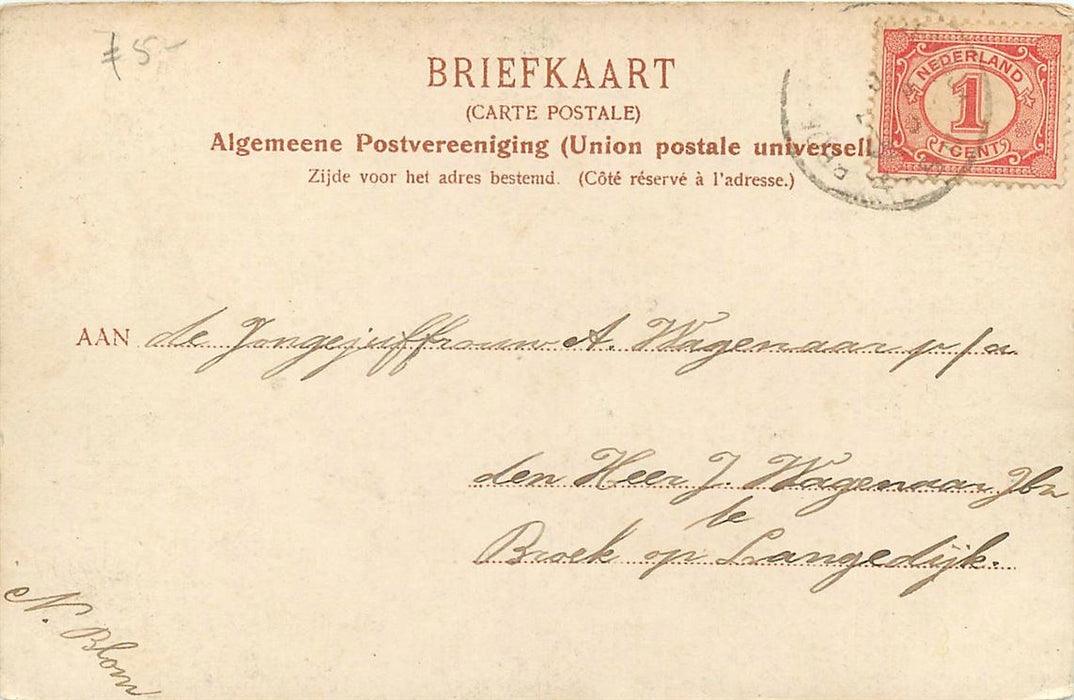 75-
BRIEFKAART
(CARTE POSTALE)
Algemeene Postvereeniging (Union postale universell
Zijde voor het adres bestemd. (Côté réservé à l'adresse.)
NEDERLAND
1
1 CENT
AAN de Jongejuffrouw A. Wagenaar p/a
den Heer J. Wagenaar Jbz
te
Broek op Langedijk.
N. Blom